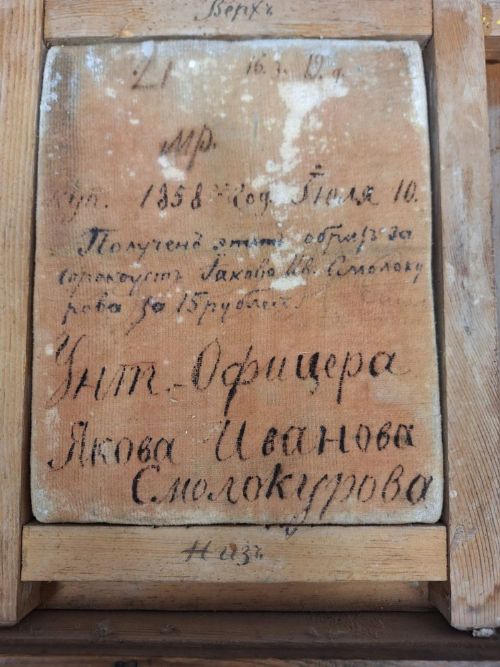 Верхъ
21 16. 3. 19. д.
Мр.
куп. 1858 Год. Июля 10.
Полученъ этотъ образъ за
сорокоустъ Iакова Ив. Смолоку
рова за 15 рублей.
Унт.-Офицера
Якова Иванова
Смолокурова
Низъ